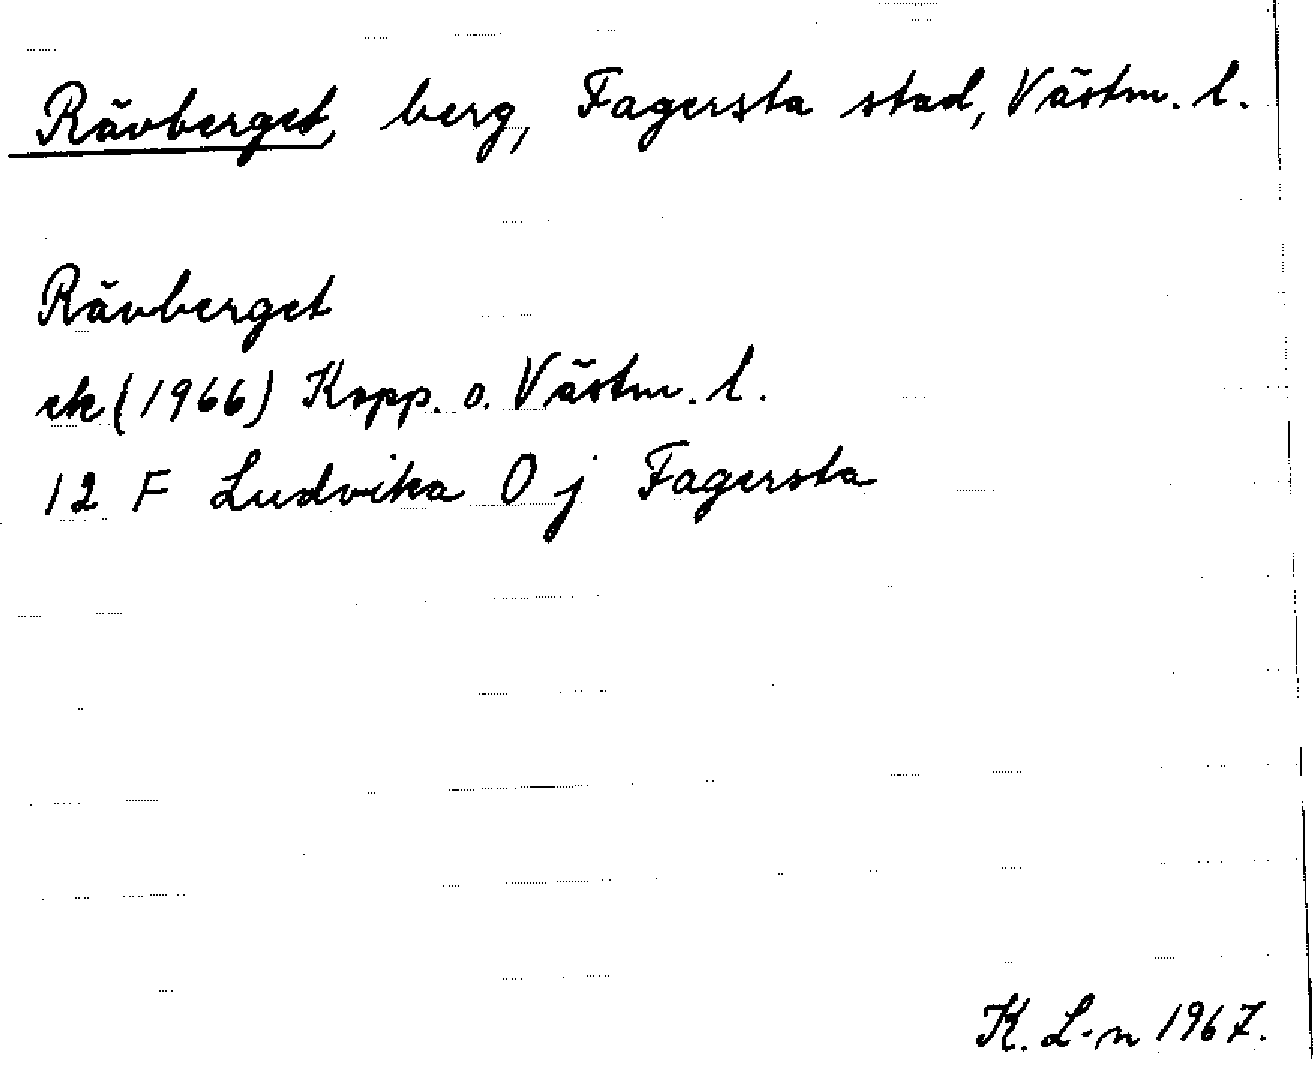 Rävberget, berg, Fagersta stad, Västm. l.
Rävberget
ek (1966) Kopp. o. Västm. l.
12 F Ludvika 0 j Fagersta
K. L-n 1967.